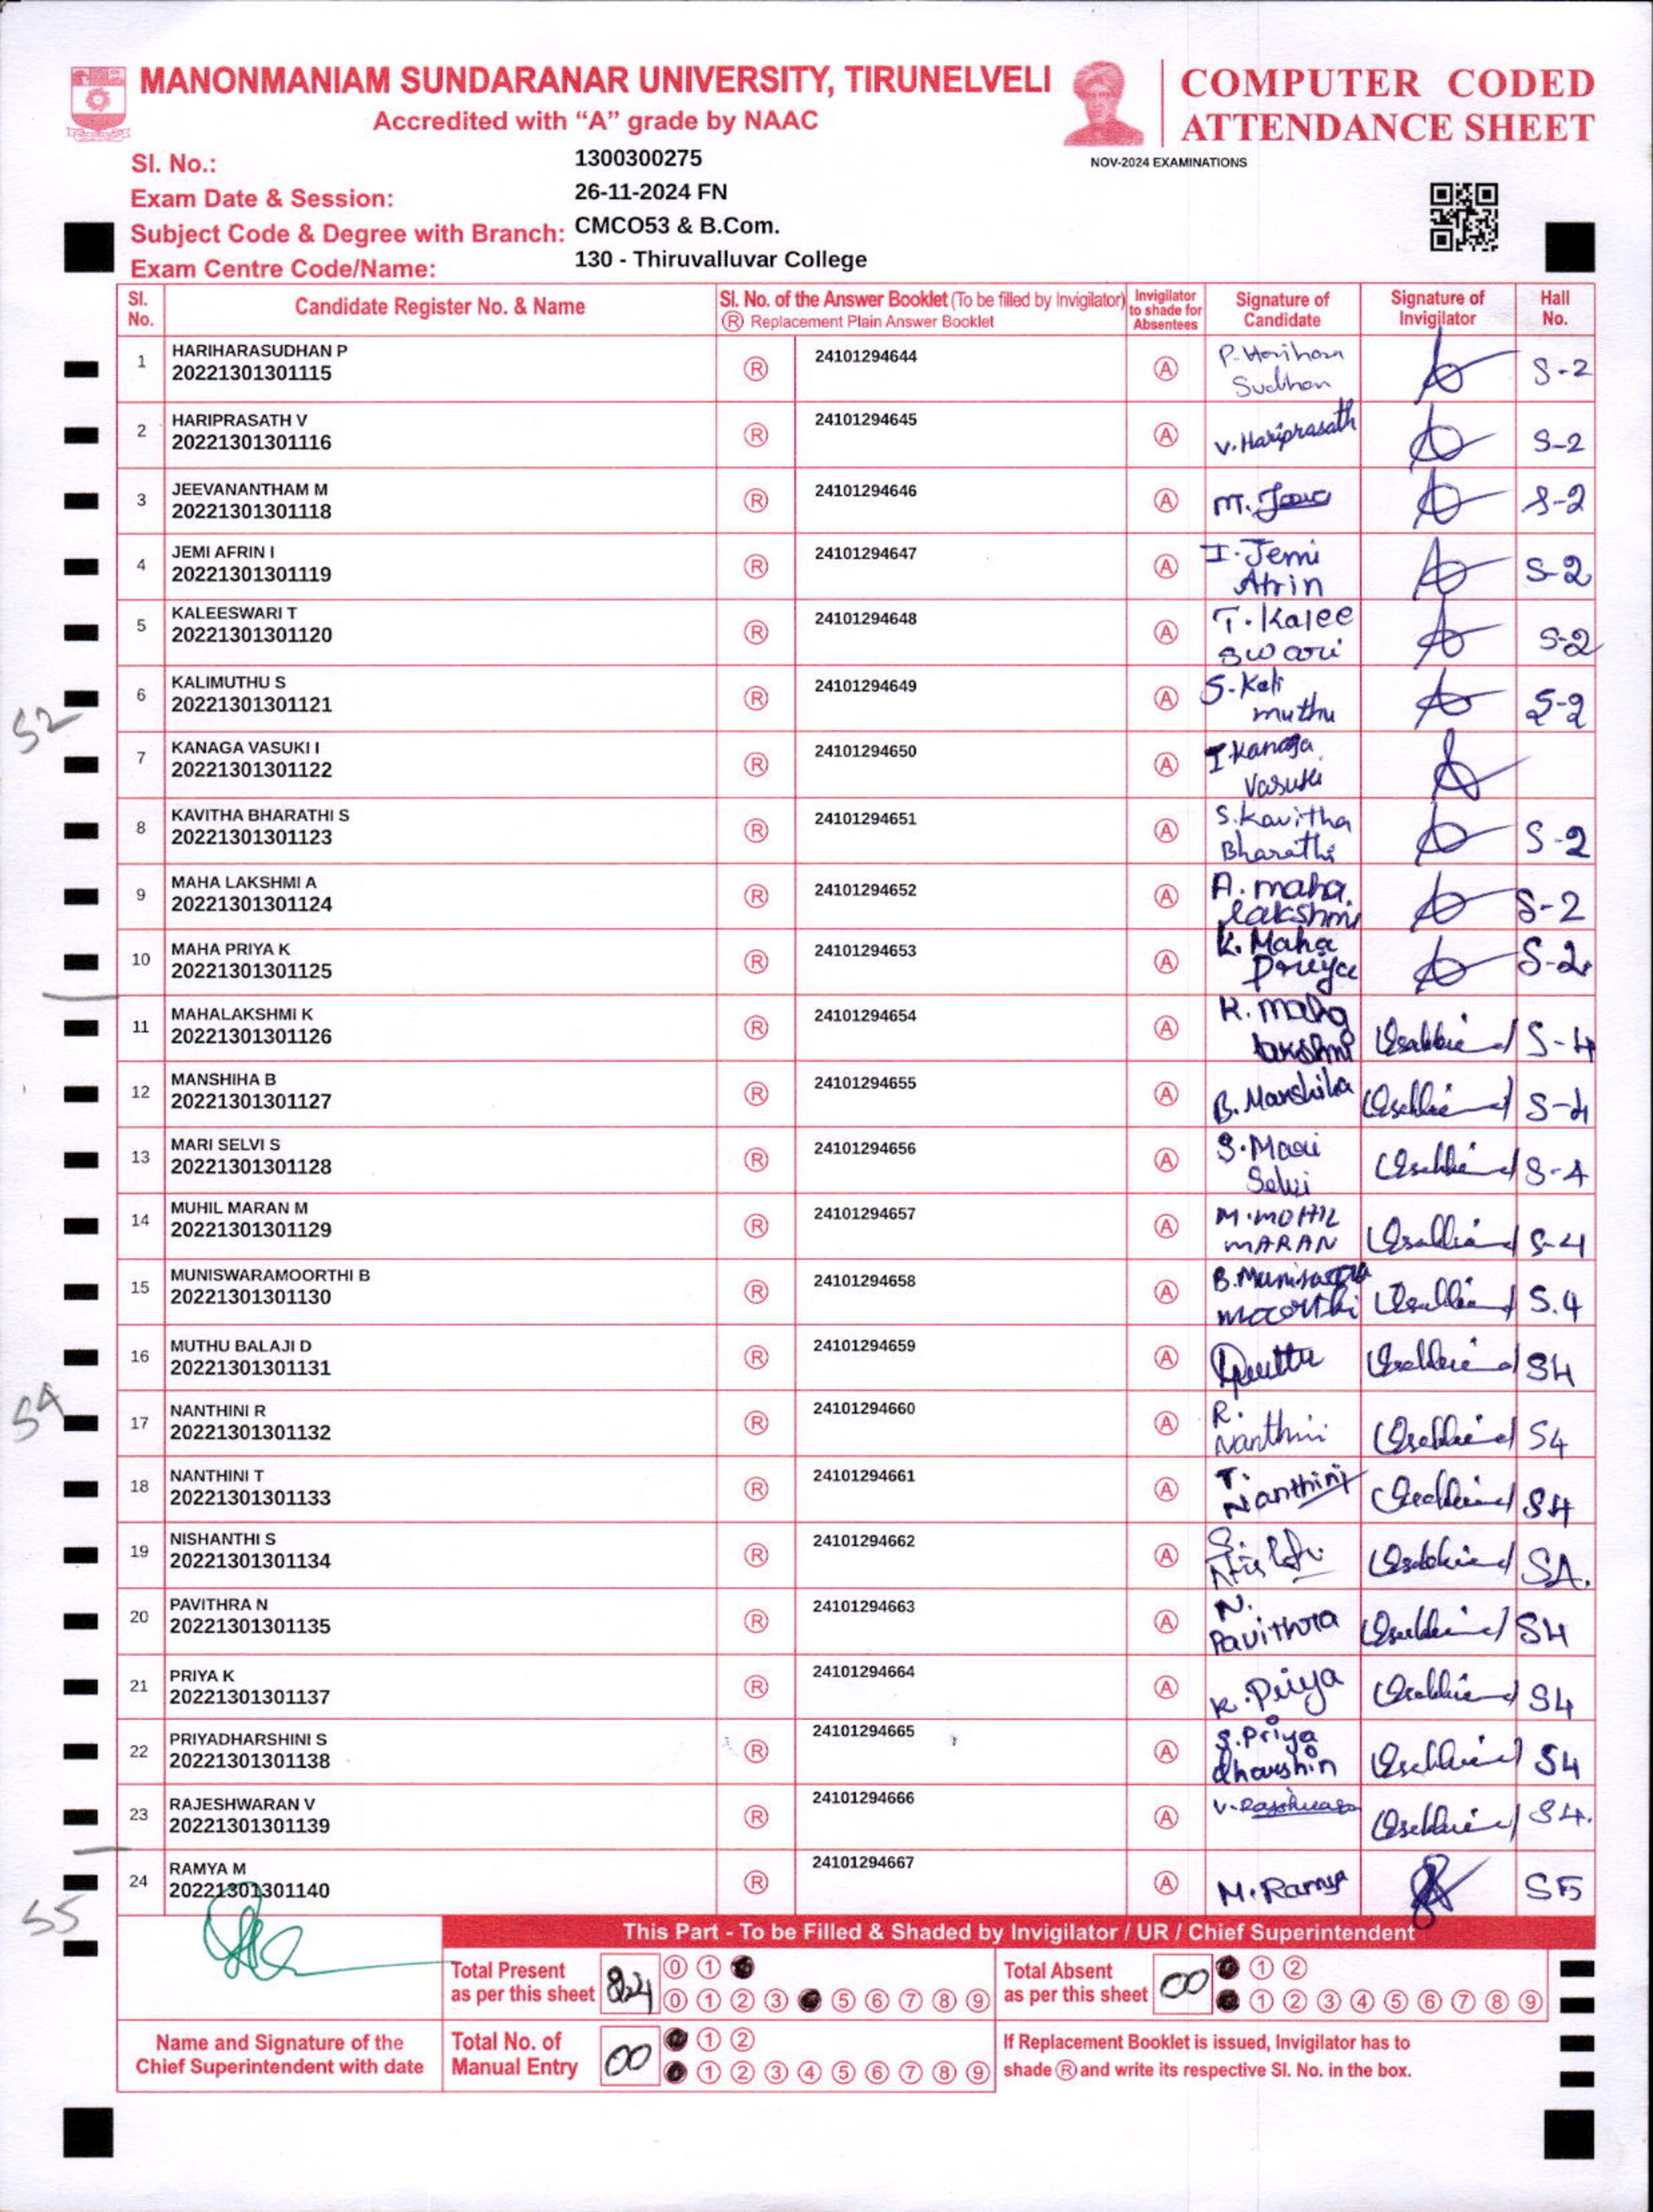 MANONMANIAM SUNDARANAR UNIVERSITY, TIRUNELVELI
Accredited with “A” grade by NAAC
COMPUTER CODED
ATTENDANCE SHEET
NOV-2024 EXAMINATIONS
Sl. No.: 1300300275
Exam Date & Session: 26-11-2024 FN
Subject Code & Degree with Branch: CMCO53 & B.Com.
Exam Centre Code/Name: 130 - Thiruvalluvar College
Sl. No. Candidate Register No. & Name Sl. No. of the Answer Booklet (To be filled by Invigilator) Ⓡ Replacement Plain Answer Booklet Invigilator to shade for Absentees Signature of Candidate Signature of Invigilator Hall No.
1 HARIHARASUDHAN P 20221301301115 Ⓡ 24101294644 Ⓐ P. Harihara Sudhan S-2
2 HARIPRASATH V 20221301301116 Ⓡ 24101294645 Ⓐ V. Hariprasath S-2
3 JEEVANANTHAM M 20221301301118 Ⓡ 24101294646 Ⓐ M. S-2
4 JEMI AFRIN I 20221301301119 Ⓡ 24101294647 Ⓐ I. Jemi Afrin S-2
5 KALEESWARI T 20221301301120 Ⓡ 24101294648 Ⓐ T. Kalee swari S-2
6 KALIMUTHU S 20221301301121 Ⓡ 24101294649 Ⓐ S. Kali muthu S-2
S2
7 KANAGA VASUKI I 20221301301122 Ⓡ 24101294650 Ⓐ I Kanaga Vasuki
8 KAVITHA BHARATHI S 20221301301123 Ⓡ 24101294651 Ⓐ S. Kavitha Bharathi S-2
9 MAHA LAKSHMI A 20221301301124 Ⓡ 24101294652 Ⓐ A. maha lakshmi S-2
10 MAHA PRIYA K 20221301301125 Ⓡ 24101294653 Ⓐ K. Maha Priya S-2
11 MAHALAKSHMI K 20221301301126 Ⓡ 24101294654 Ⓐ K. maha lakshmi S-4
12 MANSHIHA B 20221301301127 Ⓡ 24101294655 Ⓐ B. Manshiha S-4
13 MARI SELVI S 20221301301128 Ⓡ 24101294656 Ⓐ S. Mari Selvi S-4
14 MUHIL MARAN M 20221301301129 Ⓡ 24101294657 Ⓐ M. MOHIL MARAN S-4
15 MUNISWARAMOORTHI B 20221301301130 Ⓡ 24101294658 Ⓐ B. moorthi S.4
16 MUTHU BALAJI D 20221301301131 Ⓡ 24101294659 Ⓐ S4
S4
17 NANTHINI R 20221301301132 Ⓡ 24101294660 Ⓐ R. Nanthini S4
18 NANTHINI T 20221301301133 Ⓡ 24101294661 Ⓐ T. Nanthini S4
19 NISHANTHI S 20221301301134 Ⓡ 24101294662 Ⓐ S. S4.
20 PAVITHRA N 20221301301135 Ⓡ 24101294663 Ⓐ N. Pavithra S4
21 PRIYA K 20221301301137 Ⓡ 24101294664 Ⓐ K. Priya S4
22 PRIYADHARSHINI S 20221301301138 Ⓡ 24101294665 Ⓐ S. Priya dharshin S4
23 RAJESHWARAN V 20221301301139 Ⓡ 24101294666 Ⓐ V. S4.
24 RAMYA M 20221301301140 Ⓡ 24101294667 Ⓐ M. Ramya S5
S5
This Part - To be Filled & Shaded by Invigilator / UR / Chief Superintendent
Total Present as per this sheet 24 ⓪ ① ⓪ ① ② ③ ⑤ ⑥ ⑦ ⑧ ⑨
Total Absent as per this sheet 00 ① ② ① ② ③ ④ ⑤ ⑥ ⑦ ⑧ ⑨
Name and Signature of the Chief Superintendent with date
Total No. of Manual Entry 00 ① ② ① ② ③ ④ ⑤ ⑥ ⑦ ⑧ ⑨
If Replacement Booklet is issued, Invigilator has to
shade Ⓡ and write its respective Sl. No. in the box.